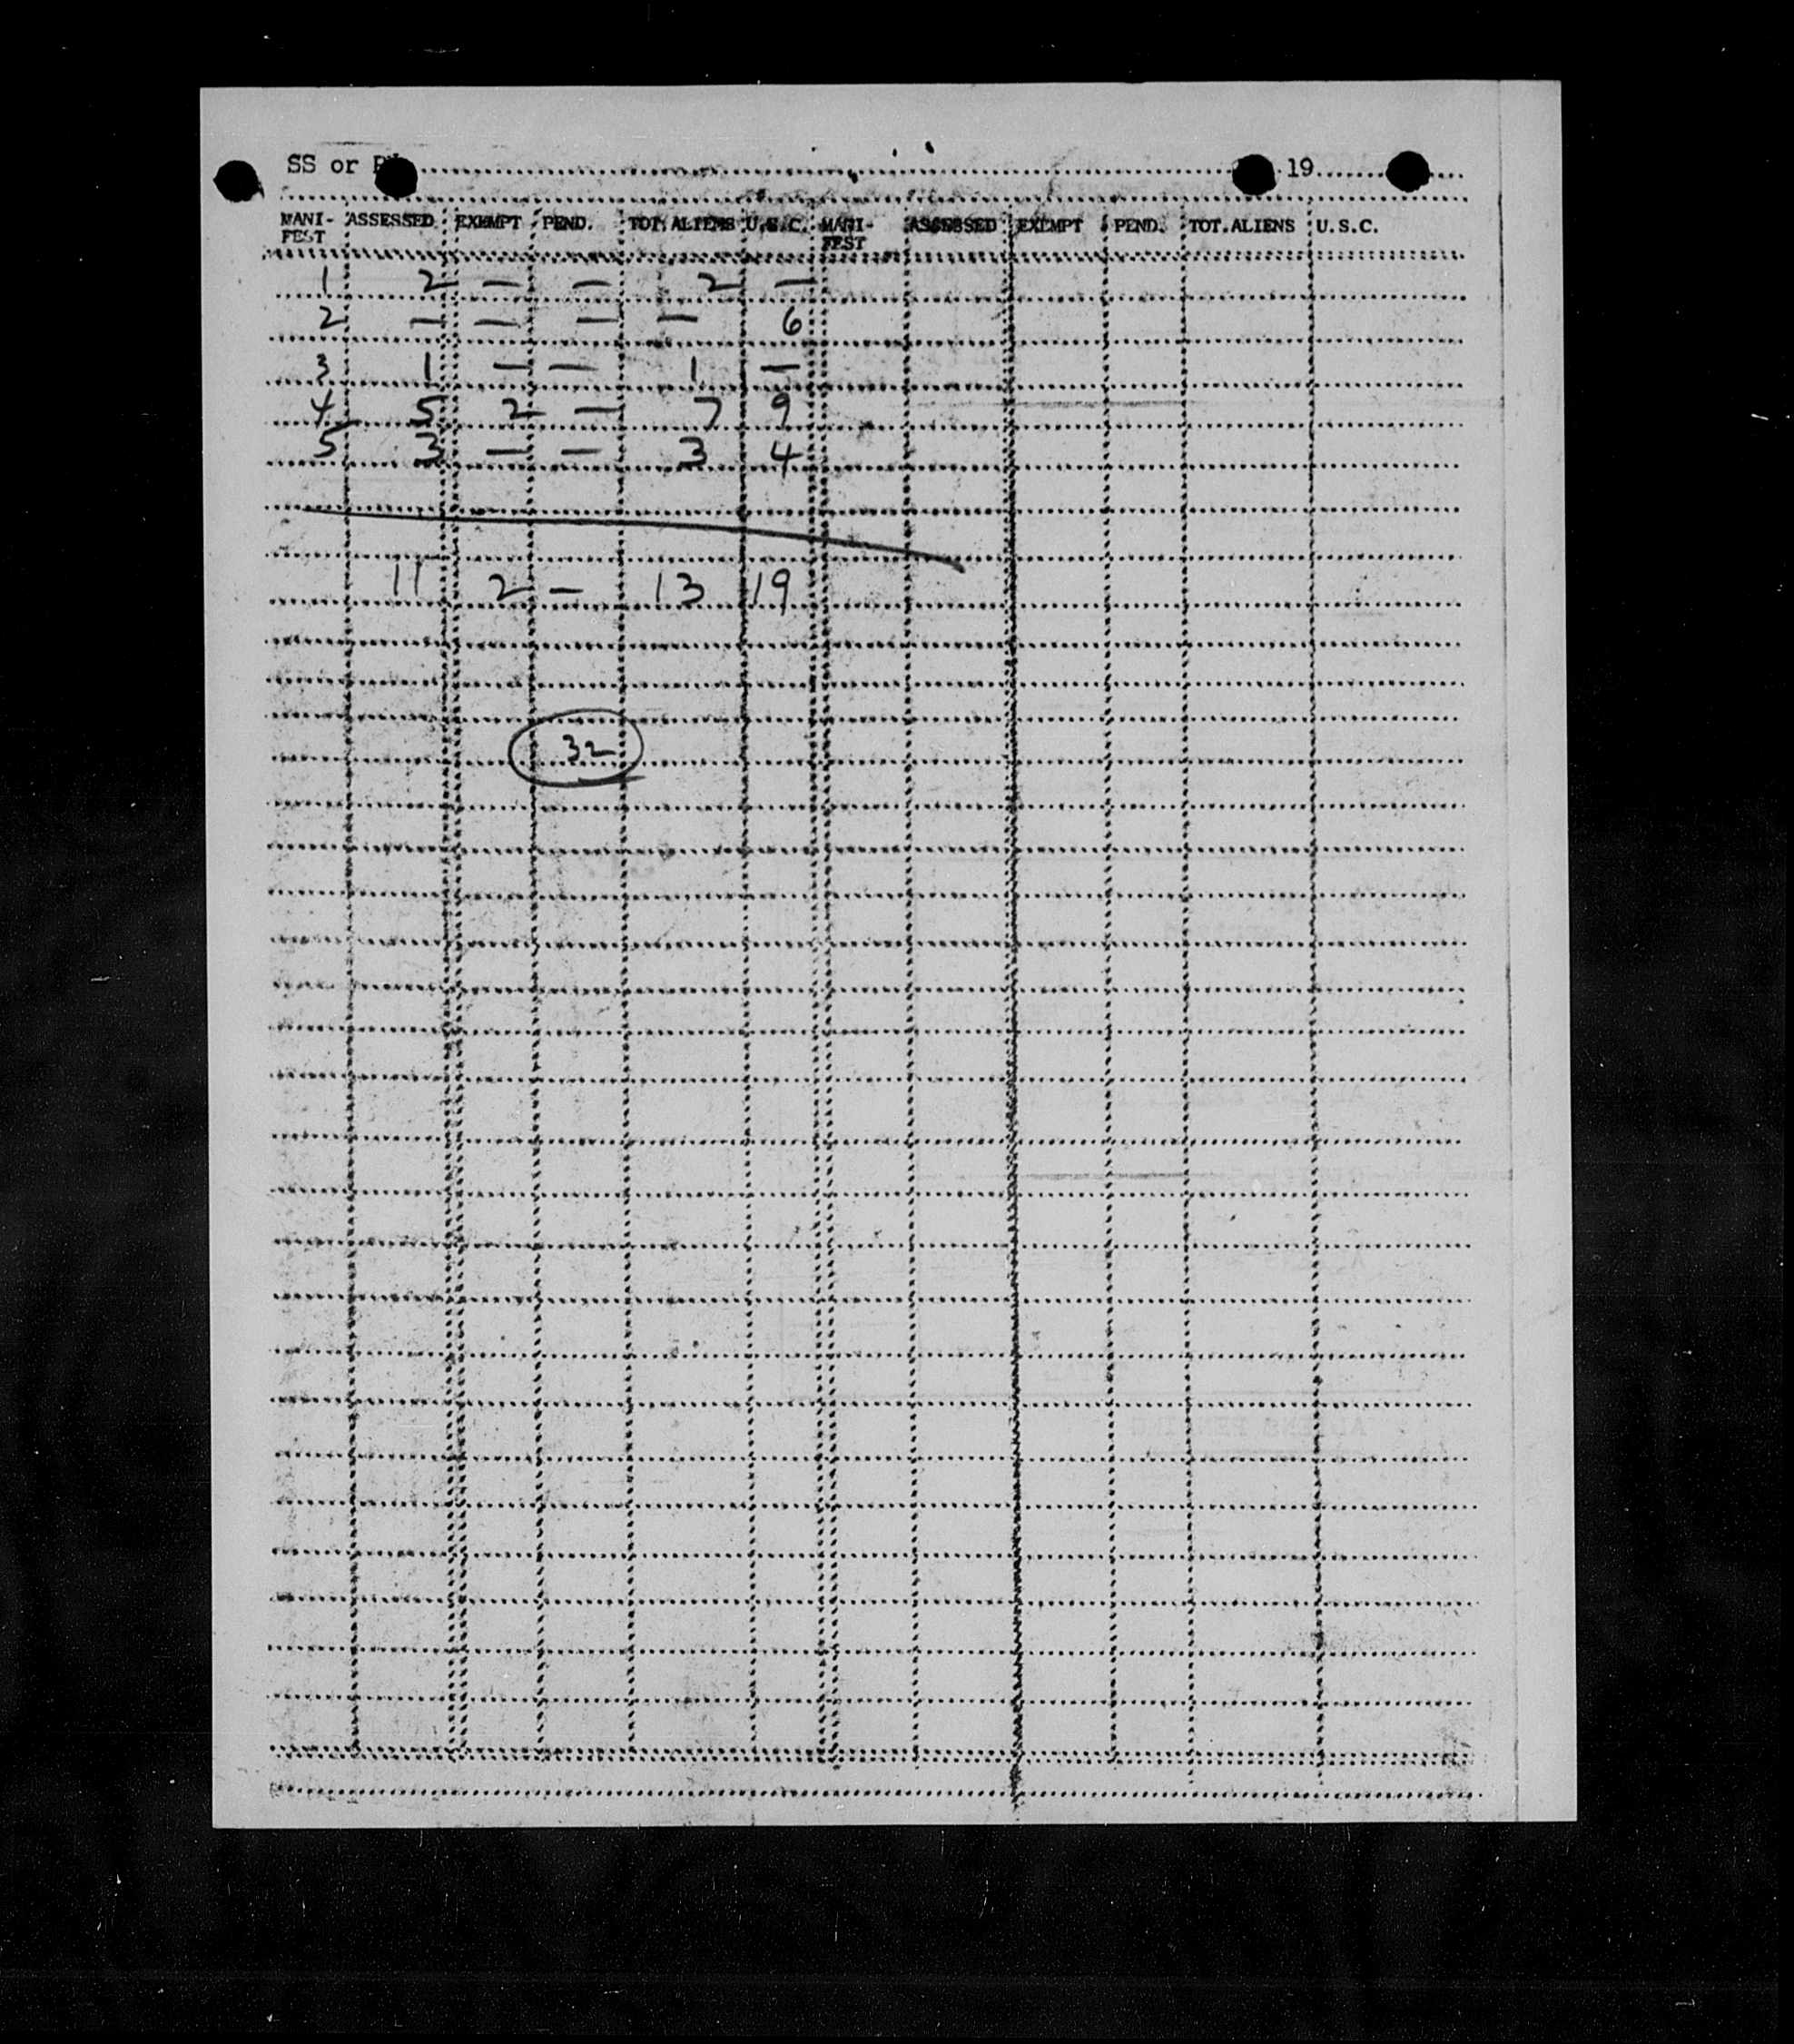 SS or 19
MANI- ASSESSED EXEMPT PEND. TOT. ALIENS U.S.C. MANI- ASSESSED EXEMPT PEND. TOT. ALIENS U.S.C.
FEST FEST
1 2 — — 2 —
2 — — — — 6
3 1 — — 1 —
4 5 2 — 7 9
5 3 — — 3 4
11 2 — 13 19
32